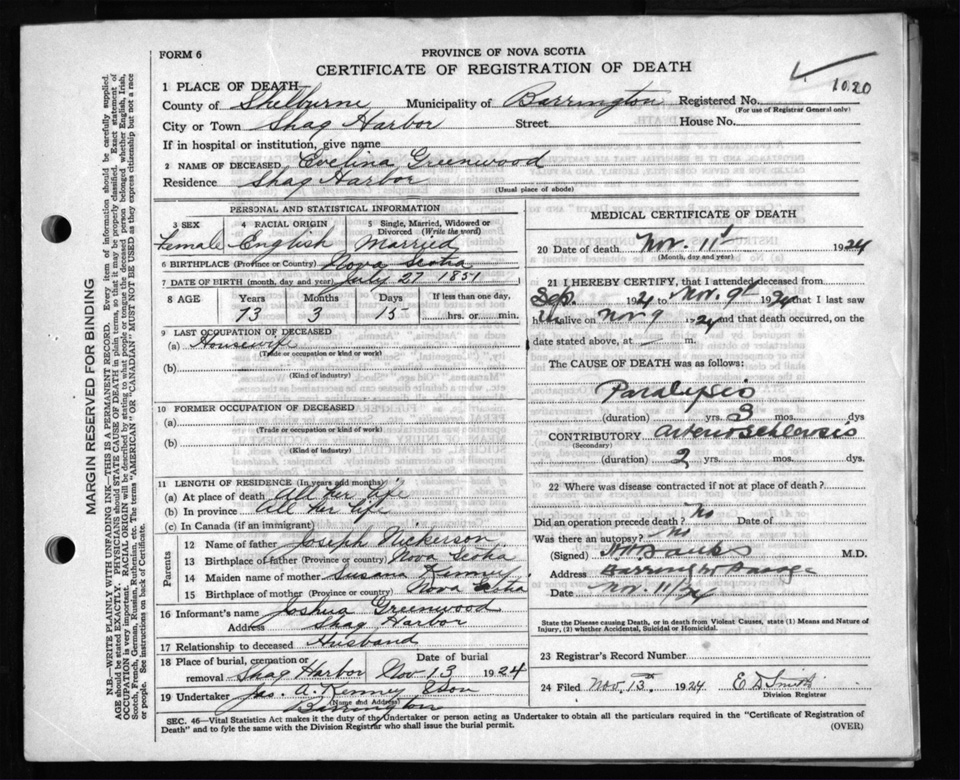 FORM 6
PROVINCE OF NOVA SCOTIA
CERTIFICATE OF REGISTRATION OF DEATH
1020
1 PLACE OF DEATH
County of Shelburne Municipality of Barrington Registered No.
(For use of Registrar General only)
City or Town Shag Harbor Street House No.
If in hospital or institution, give name
2 NAME OF DECEASED Evelina Greenwood
Residence Shag Harbor
(Usual place of abode)
PERSONAL AND STATISTICAL INFORMATION
3 SEX 4 RACIAL ORIGIN 5 Single, Married, Widowed or Divorced (Write the word)
Female English Married
6 BIRTHPLACE (Province or Country) Nova Scotia
7 DATE OF BIRTH (month, day and year) July 27 1851
8 AGE Years Months Days If less than one day,
73 3 15 hrs. or min.
9 LAST OCCUPATION OF DECEASED
(a) Housewife
(Trade or occupation or kind of work)
(b)
(Kind of industry)
10 FORMER OCCUPATION OF DECEASED
(a)
(Trade or occupation or kind of work)
(b)
(Kind of industry)
11 LENGTH OF RESIDENCE (In years and months)
(a) At place of death All her life
(b) In province All her life
(c) In Canada (if an immigrant)
Parents
12 Name of father Joseph Nickerson
13 Birthplace of father (Province or country) Nova Scotia
14 Maiden name of mother Susana Kenney
15 Birthplace of mother (Province or country) Nova Scotia
16 Informant's name Joshua Greenwood
Address Shag Harbor
17 Relationship to deceased Husband
18 Place of burial, cremation or removal Shag Harbor Date of burial Nov 13 1924
19 Undertaker Jas. A. Kenney & Son
(Name and Address)
Barrington
MEDICAL CERTIFICATE OF DEATH
20 Date of death Nov. 11 1924
(Month, day and year)
21 I HEREBY CERTIFY, that I attended deceased from
Sep. 1924 to Nov. 9 1924 that I last saw
h alive on Nov 9 1924 and that death occurred, on the
date stated above, at — m.
The CAUSE OF DEATH was as follows:
Paralysis
(duration) yrs. 3 mos. dys
CONTRIBUTORY Arteriosclerosis
(Secondary)
(duration) 2 yrs. mos. dys.
22 Where was disease contracted if not at place of death?
Did an operation precede death? No Date of
Was there an autopsy? No
(Signed) Banks M.D.
Address Barrington Passage
Date Nov. 11/24
State the Disease causing Death, or in death from Violent Causes, state (1) Means and Nature of Injury, (2) whether Accidental, Suicidal or Homicidal.
23 Registrar's Record Number
24 Filed Nov. 13th 1924 E D Smith
Division Registrar
SEC. 46—Vital Statistics Act makes it the duty of the Undertaker or person acting as Undertaker to obtain all the particulars required in the "Certificate of Registration of
Death" and to fyle the same with the Division Registrar who shall issue the burial permit.
(OVER)
MARGIN RESERVED FOR BINDING
N.B.—WRITE PLAINLY WITH UNFADING INK—THIS IS A PERMANENT RECORD. Every item of information should be carefully supplied.
AGE should be stated EXACTLY. PHYSICIANS should STATE CAUSE OF DEATH in plain terms, so that it may be properly classified. Exact statement of
OCCUPATION is very important. RACIAL ORIGIN will be described by stating to what people or tongue the deceased person belonged, whether English, Irish,
Scotch, French, German, Russian, Ruthenian, etc. The terms "AMERICAN" OR "CANADIAN" MUST NOT BE USED as they express citizenship but not a race
or people. See instructions on back of Certificate.